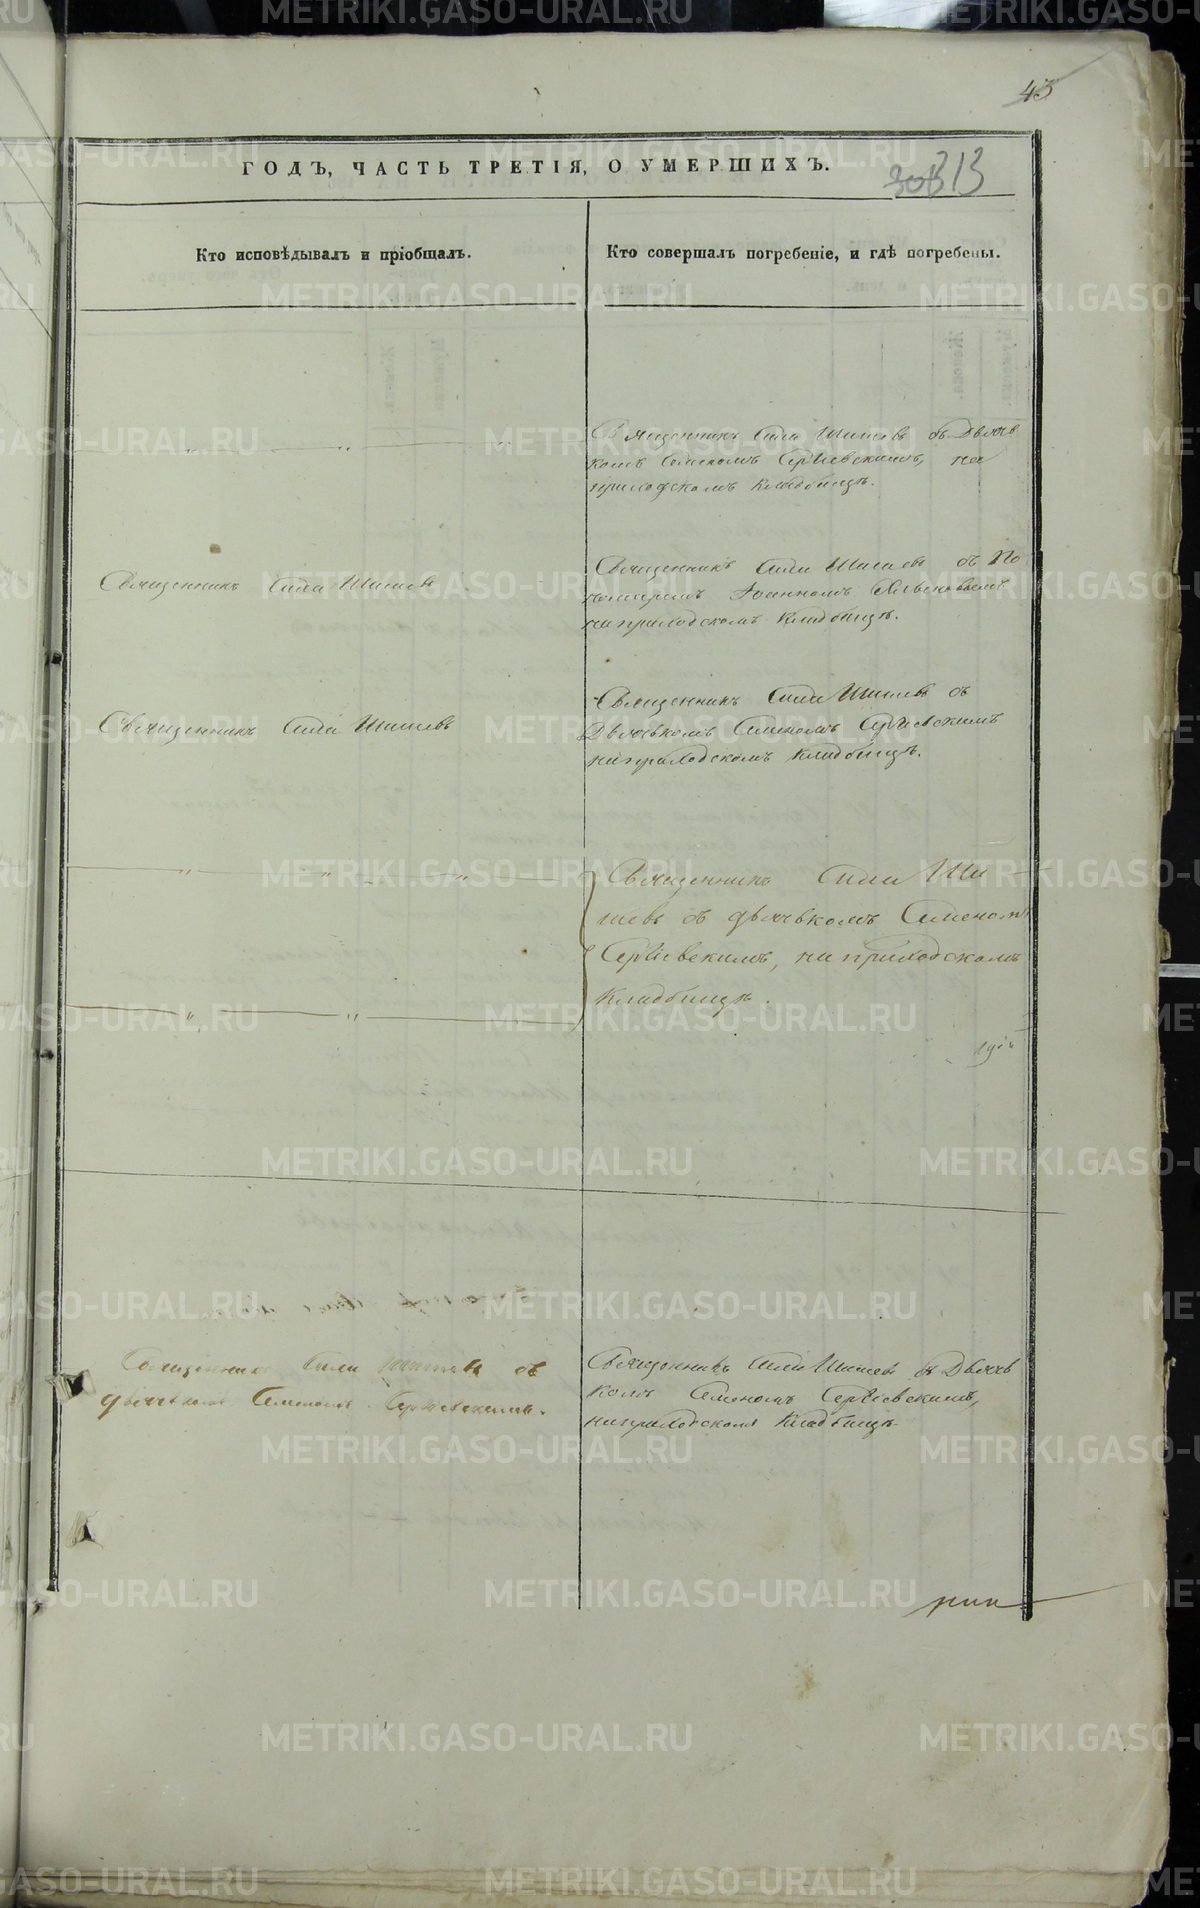 43
ГОДЪ, ЧАСТЬ ТРЕТІЯ, О УМЕРШИХЪ.
313
Кто исповѣдывалъ и пріобщалъ.
Кто совершалъ погребеніе, и гдѣ погребены.
Священникъ Сила Шишевъ съ Дьячь
комъ Семеномъ Сергіевскимъ, на
приходскомъ кладбищѣ.
Священникъ Сила Шишевъ
Священникъ Сила Шишевъ съ По
номаремъ Іоанномъ
на приходскомъ кладбищѣ.
Священникъ Сила Шишевъ
Священникъ Сила Шишевъ съ
Дьячькомъ Семеномъ Сергіевскимъ
на приходскомъ кладбищѣ.
Священникъ Сила Ши
шевъ съ дьячькомъ Семеномъ
Сергіевскимъ, на приходскомъ
кладбищѣ.
Священникъ Сила Шишевъ съ
дьячькомъ Семеномъ Сергіевскимъ.
Священникъ Сила Шишевъ съ Дьячь
комъ Семеномъ Сергіевскимъ,
на приходскомъ кладбищѣ.
METRIKI.GASO-URAL.RU